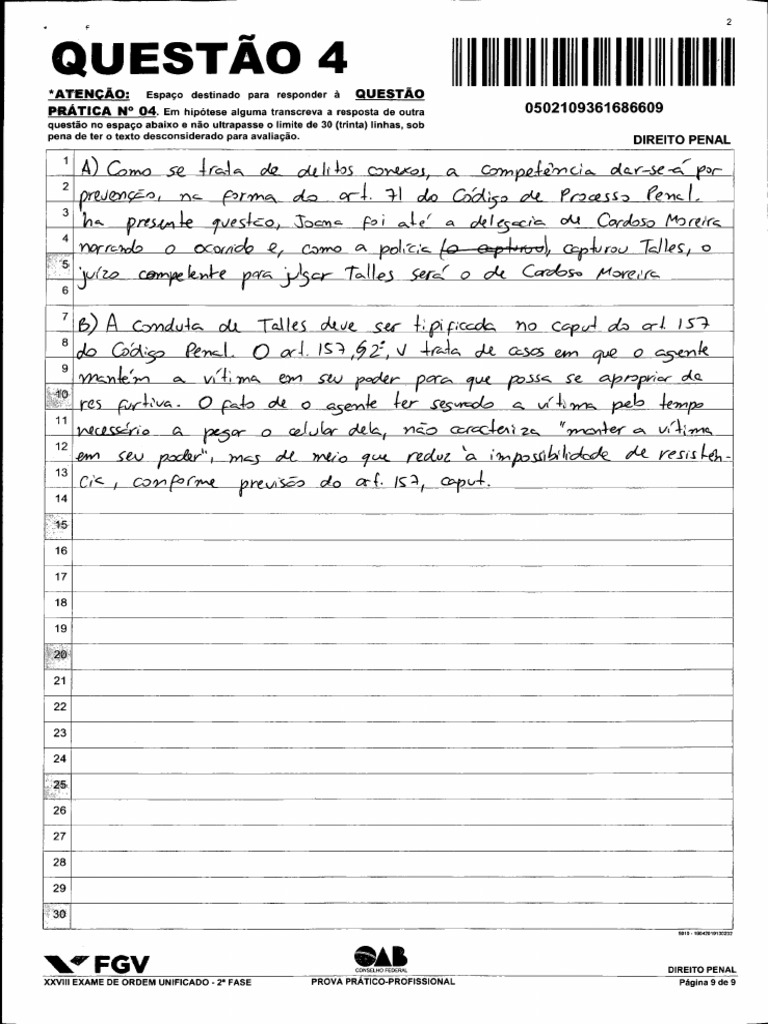 2
QUESTÃO 4
*ATENÇÃO: Espaço destinado para responder à QUESTÃO
PRÁTICA Nº 04. Em hipótese alguma transcreva a resposta de outra
questão no espaço abaixo e não ultrapasse o limite de 30 (trinta) linhas, sob
pena de ter o texto desconsiderado para avaliação.
0502109361686609
DIREITO PENAL
1 A) Como se trata de delitos conexos, a competência dar-se-á por
2 prevenção, na forma do art. 71 do Código de Processo Penal.
3 Na presente questão, Joana foi até a delegacia de Cardoso Moreira
4 narrando o ocorrido e, como a polícia (o capturou), capturou Talles, o
5 juízo competente para julgar Talles será o de Cardoso Moreira
6
7 B) A conduta de Talles deve ser tipificada no caput do art. 157
8 do Código Penal. O art. 157, §2º, V trata de casos em que o agente
9 mantém a vítima em seu poder para que possa se apropriar da
10 res furtiva. O fato de o agente ter segurado a vítima pelo tempo
11 necessário a pegar o celular dela, não caracteriza "manter a vítima
12 em seu poder", mas de meio que reduz à impossibilidade de resistên-
13 cia, conforme previsão do art. 157, caput.
14
15
16
17
18
19
20
21
22
23
24
25
26
27
28
29
30
FGV
OAB
CONSELHO FEDERAL
DIREITO PENAL
XXVIII EXAME DE ORDEM UNIFICADO - 2ª FASE
PROVA PRÁTICO-PROFISSIONAL
Página 9 de 9